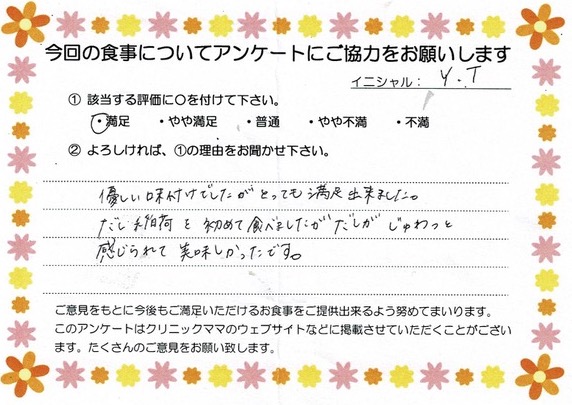 今回の食事についてアンケートにご協力をお願いします
イニシャル： Y.T
① 該当する評価に〇を付けて下さい。
・満足 ・やや満足 ・普通 ・やや不満 ・不満
② よろしければ、①の理由をお聞かせ下さい。
優しい味付けでしたがとっても満足出来ました。
だし稲荷を初めて食べましたがだしがじゅわっと
感じられて美味しかったです。
ご意見をもとに今後もご満足いただけるお食事をご提供出来るよう努めてまいります。
このアンケートはクリニックママのウェブサイトなどに掲載させていただくことがござい
ます。たくさんのご意見をお願い致します。